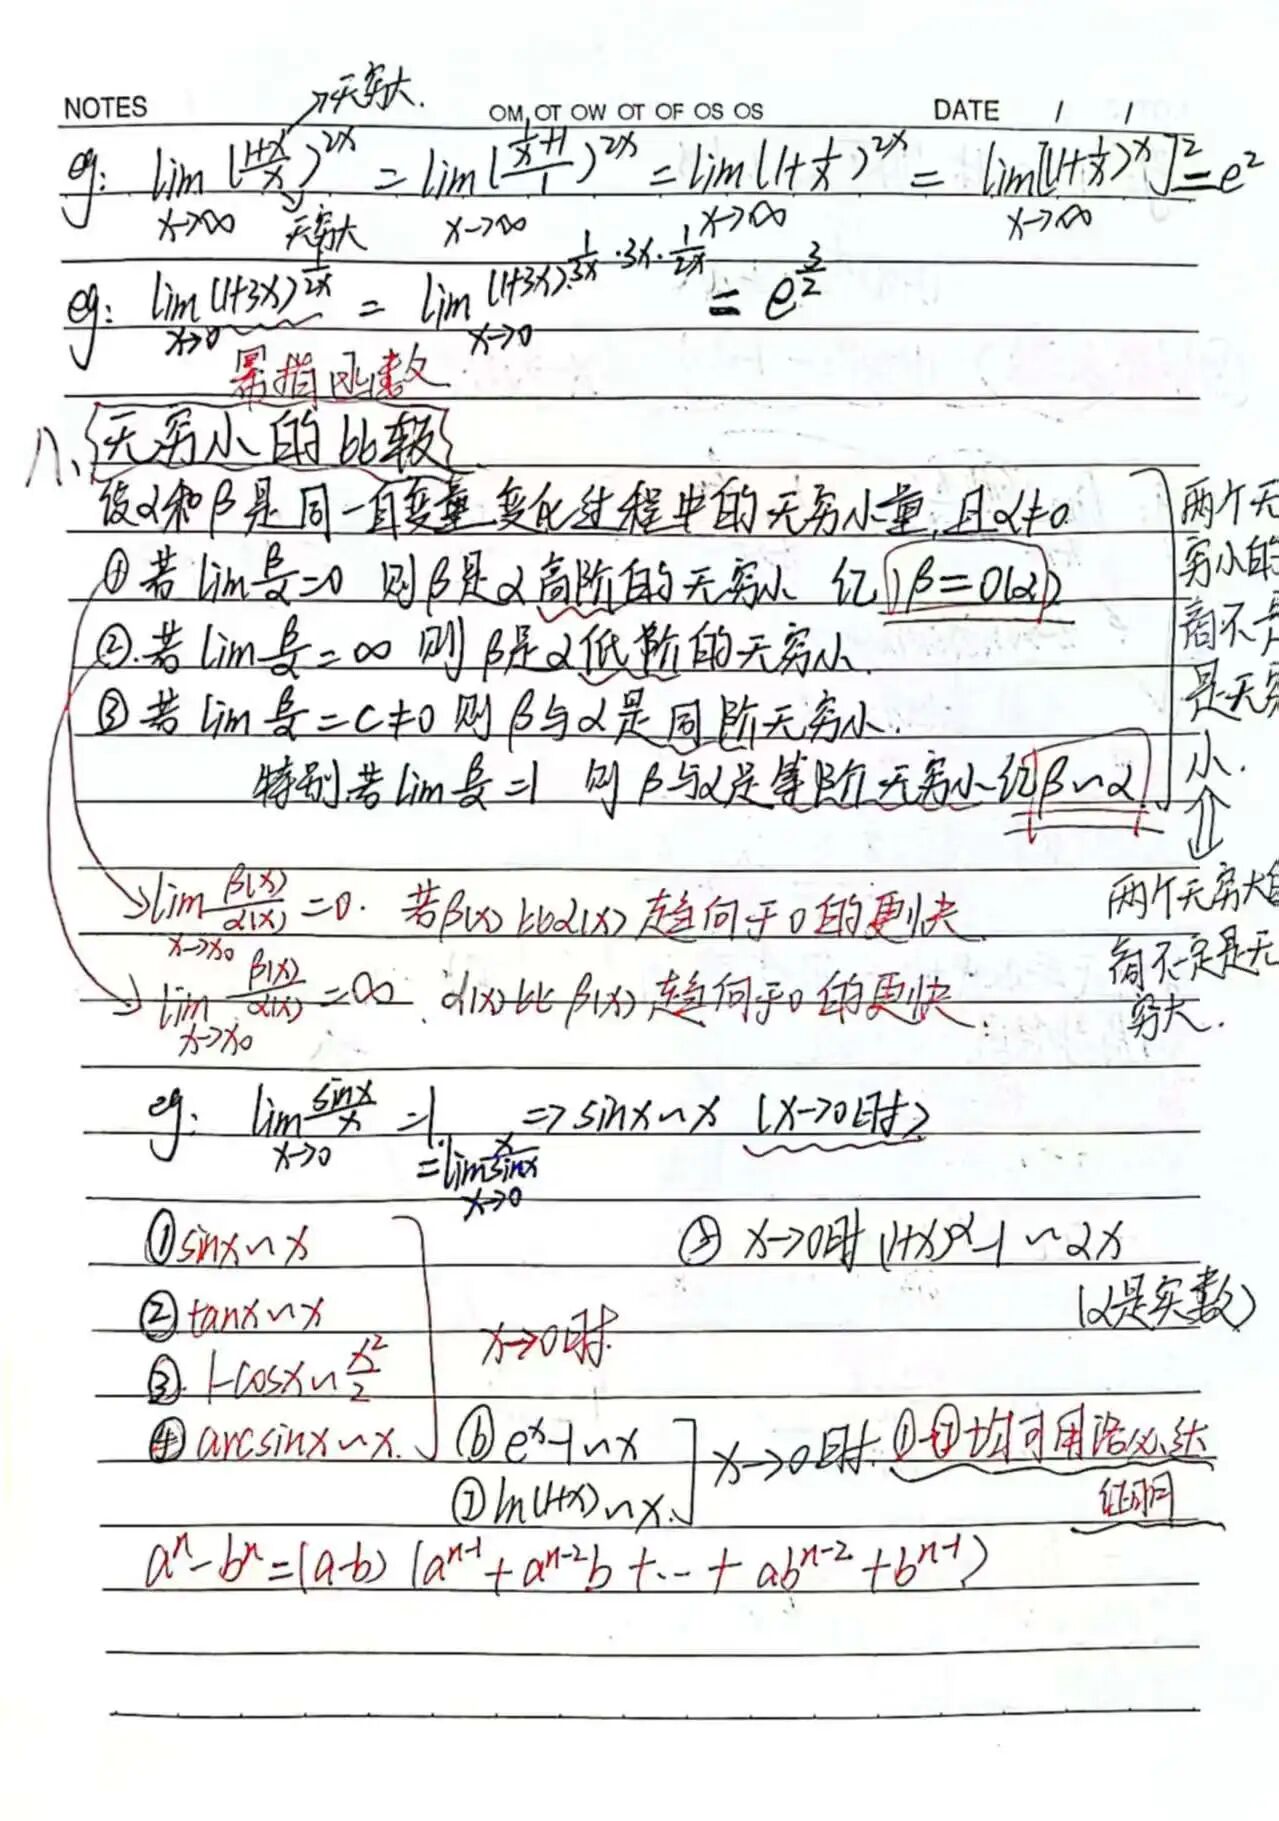 →无穷大.
NOTES OM OT OW OT OF OS OS DATE / /
eg: lim(x→∞) ((1+x)/x)^(2x) = lim(x→∞) ((1/x+1)/1)^(2x) = lim(x→∞) (1+1/x)^(2x) = lim(x→∞) [(1+1/x)^x]^2 = e^2
无穷大
eg: lim(x→0) (1+3x)^(1/2x) = lim(x→0) (1+3x)^(1/3x · 3x · 1/2x) = e^(3/2)
幂指函数
八、无穷小的比较
设α和β是同一自变量变化过程中的无穷小量,且α≠0
① 若 lim β/α = 0 则β是α高阶的无穷小 记 β=o(α)
②.若 lim β/α = ∞ 则 β是α低阶的无穷小
③ 若 lim β/α = C ≠ 0 则 β与α是同阶无穷小.
特别若 lim β/α = 1 则 β与α是等阶无穷小 记 β~α
两个无
穷小的
商不
是无穷
小.
⇕
两个无穷大
商不一定是无
穷大.
→ lim(x→x₀) β(x)/α(x) = 0. 若β(x)比α(x)趋向于0的更快
→ lim(x→x₀) β(x)/α(x) = ∞ α(x)比β(x)趋向于0的更快.
eg: lim(x→0) sinx/x = 1. => sinx~x (x→0时)
= lim(x→0) x/sinx
① sinx~x
② tanx~x
③. 1-cosx~x²/2
④ arcsinx~x.
x→0时.
⑤ x→0时 (1+x)^α-1 ~ αx
(α是实数)
⑥ e^x-1~x
⑦ ln(1+x)~x.
x→0时. ①-⑦均可用洛必达
证明
a^n-b^n=(a-b)(a^(n-1)+a^(n-2)b+...+ab^(n-2)+b^(n-1))